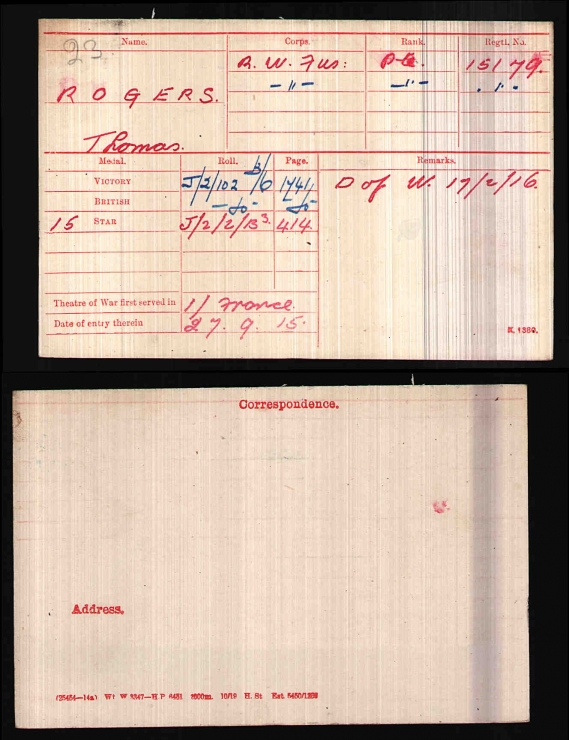 23
Name. Corps. Rank. Regtl. No.
R. W. Fus: Pte. 15179.
—"— —"— "
ROGERS.
Thomas.
Medal. Roll. Page. Remarks.
VICTORY J/2/102 B/6 1741 D of W. 17/2/16.
BRITISH —do— do
15 STAR J/2/2/B3. 414.
Theatre of War first served in 1/ France.
Date of entry therein 27. 9. 15.
K. 1380.
Correspondence.
Address.
(25454—14a) Wt W 3347—H P 6451 10/19 H. St